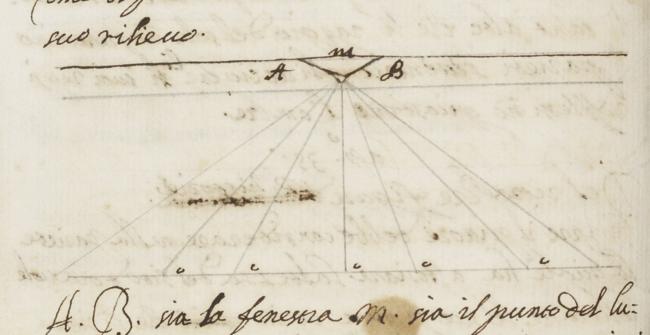 suo rilieuo.
m
A B
c c c c c
A. B. sia la fenestra m. sia il punto del lu=